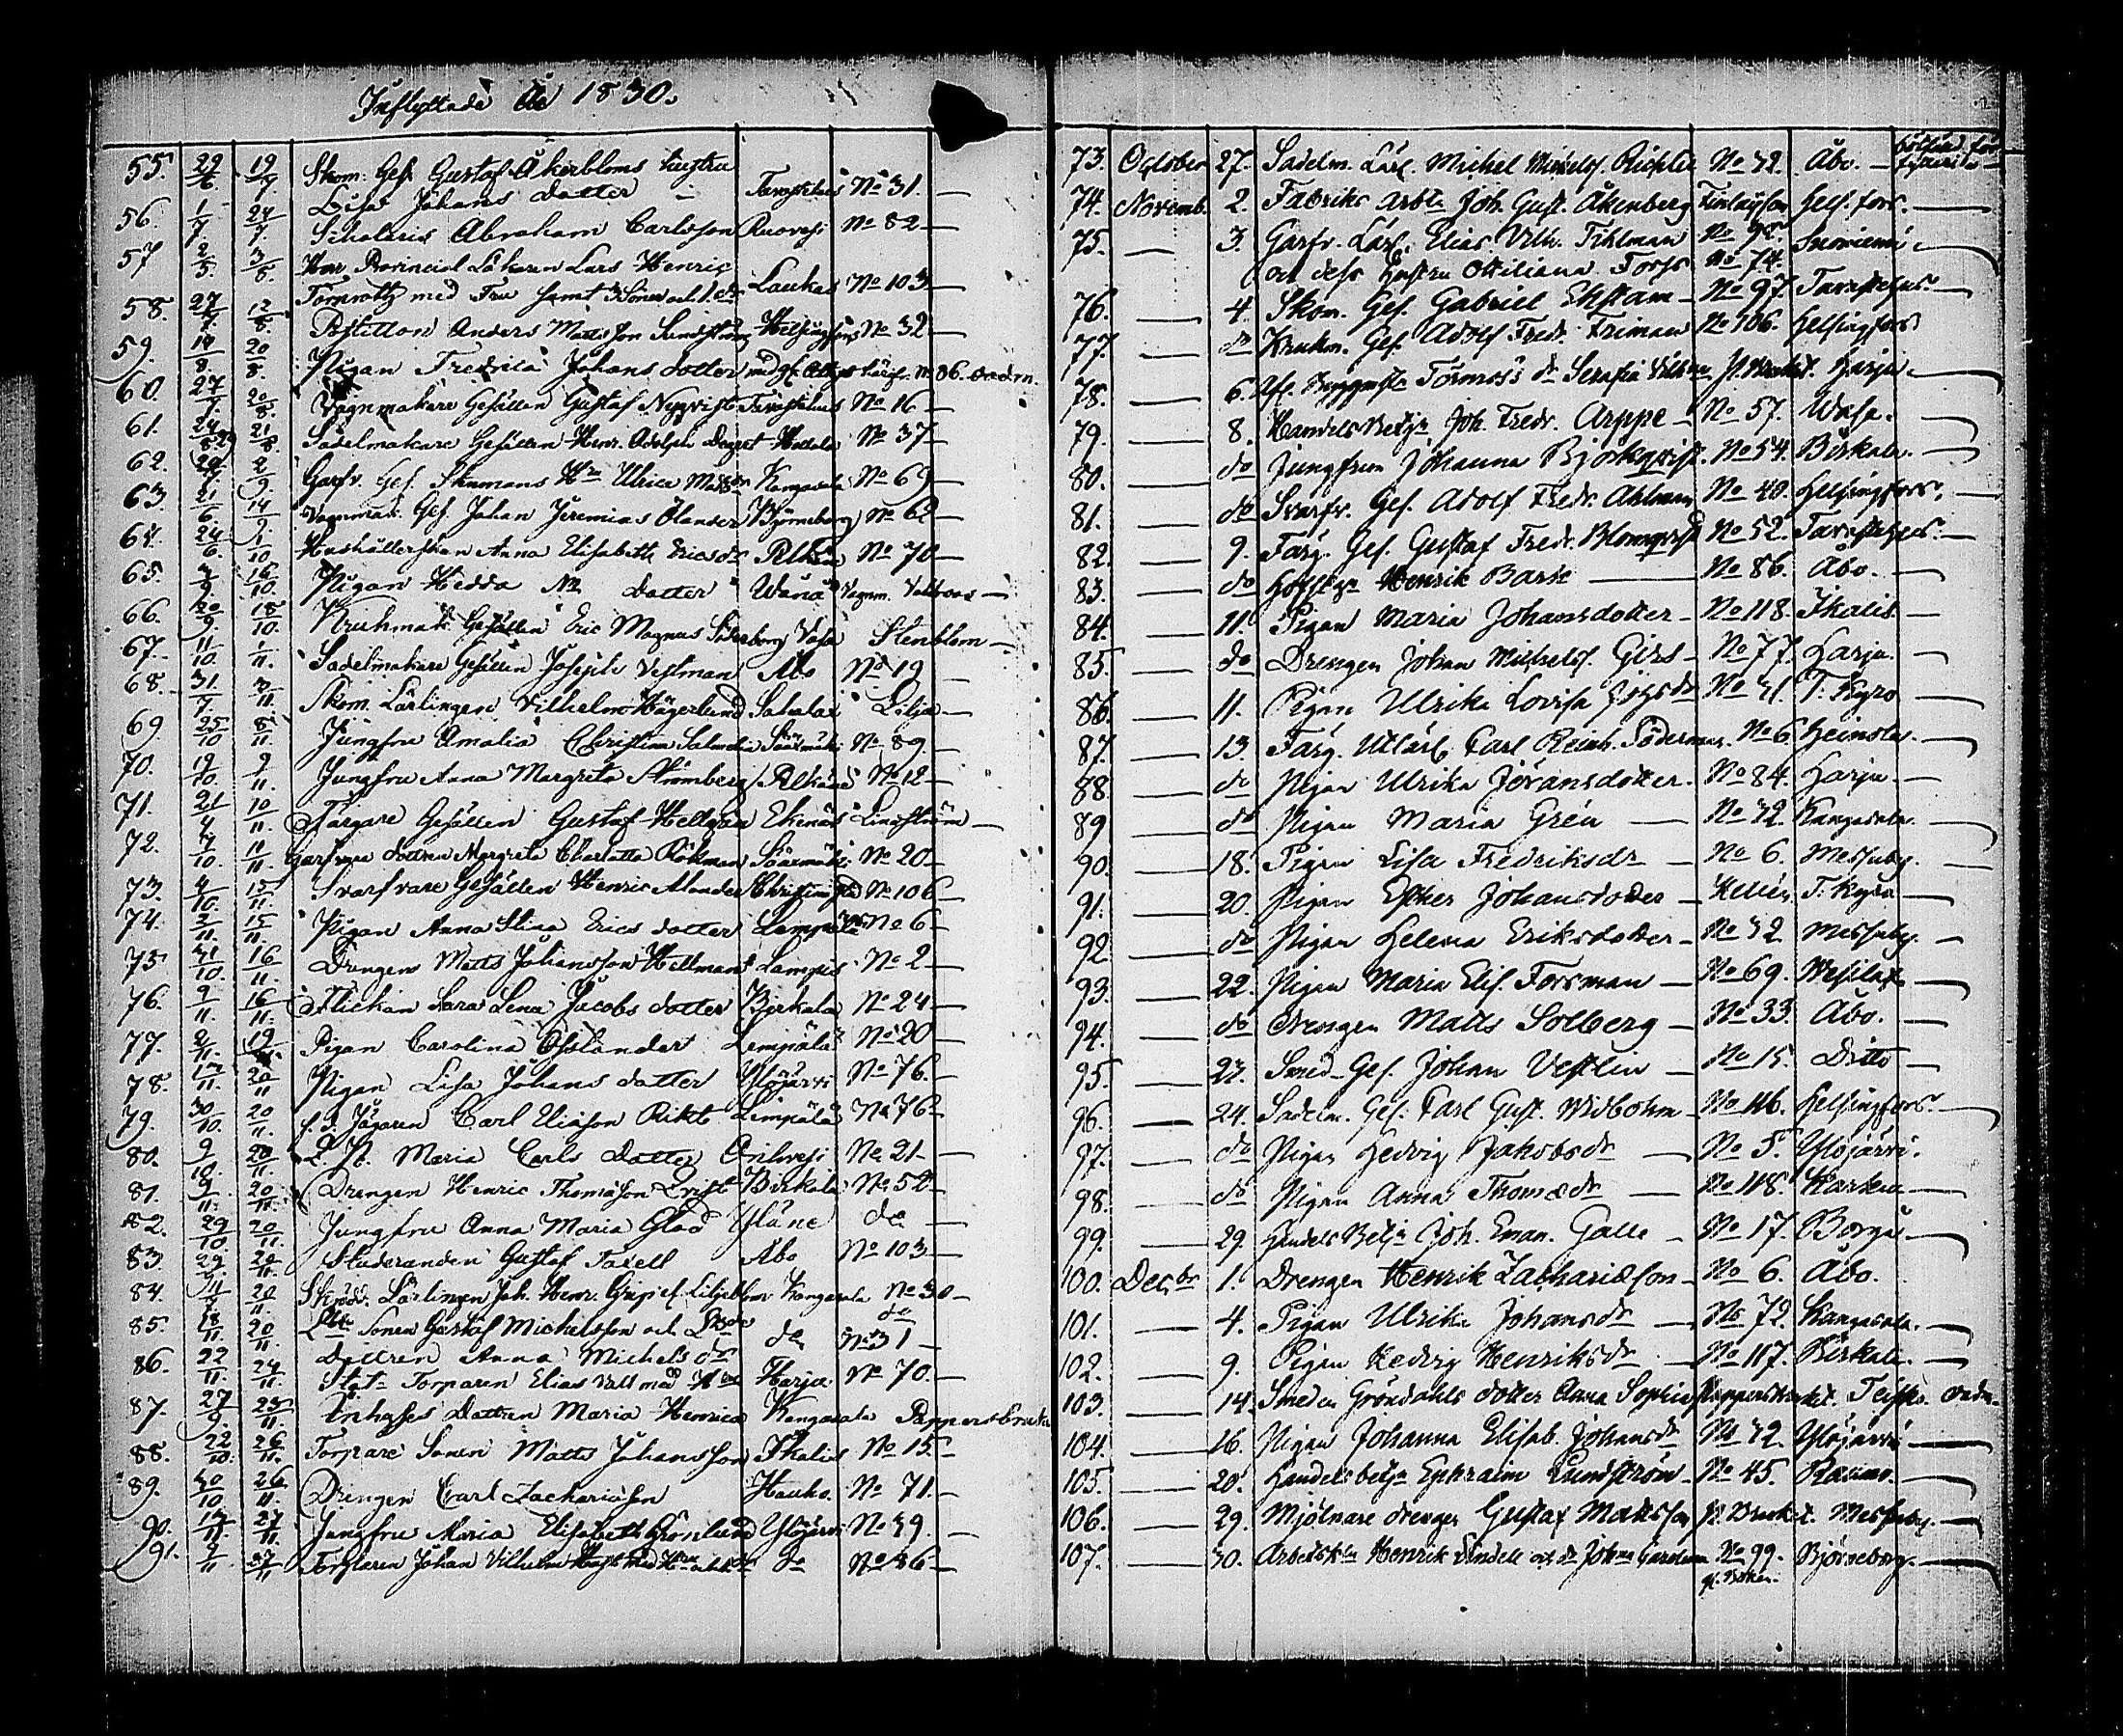 Inflyttade År 1830.
55. 29/6. 19/7 Skom. Ges. Gustaf Åkerbloms hustru
Lisa Johans dotter Tavastehus No 31. —
56. 1/7. 24/7. Scholaris Abraham Carlsson Ruovesi No 82 —
57 2/5. 3/8. Herr Provincial Läkaren Lars Henric
Törnroth med Fru samt 3 Söner och 1. dr Laukas No 103 —
58. 27/7. 12/8. Postillon Anders Mattsson Sundström Helsingfors No 32 —
59. 14/8. 20/8. Pigan Fredrica Johans dotter No 86.
60. 27/7. 20/8. Vagnmakare Gesällen Gustaf Nyqvist Tavastehus No 16 —
61. 21/8. Sadelmakare Gesällen Henr. Adolph Hattula No 37 —
62. 2/9. Garfv. Ges. Hu Ulrica Matsdr Kangasala No 69 —
63. 21/6 14/9. Vagnmak. Ges. Johan Jeremias Ölander Björneborg No 62 —
64. 24/6. 1/10 Hushållerskan Anna Elisabeth Ericsdr Pelkäne No 70 —
65. 16/10. Pigan Hedda dotter Wånå Vagnm. —
66. 20/9 18/10. Krukmak. Gesällen Eric Magnus Söderborg Vasa Stenblom —
67. 11/10. 1/11. Sadelmakare Gesällen Joseph Vestman Åbo No 19 —
68. 31/7. 3/11. Skom. Lärlingen Vilhelm Hägerlund Sahalax Lilja —
69 25/10 8/11. Jungfru Amalia Christina Salmelin Sääxmäki No 89. —
70. 19/10 9/11. Jungfru Anna Margreta Strömberg Pelkäne No 12 —
71. 21/4 10/11. Färgare Gesällen Gustaf Hellgren Ekenäs Lingström —
72. 4/10. 11/11. Garfvare dottren Margreta Charlotta Rökman Sääxmäki No 20 —
73. 4/10. 15/11. Svarfvare Gesällen Henric Alander Christinestad No 106 —
74. 2/11. 15/11. Pigan Anna Stina Erics dotter Lempälä No 6 —
75 31/10. 16/11. Drengen Matts Johansson Hellman Lampis No 2 —
76. 9/11. 16/11. Flickan Sara Lena Jacobs dotter Birkala No 24 —
77. 2/11. 19/11. Pigan Carolina Osolander Lempälä No 20 —
78. 17/11. 20/11 Pigan Lisa Johans dotter Ylöjärvi No 76. —
79. 30/10. 20/11. f. d. Jägaren Carl Eliasson Rikt Lempälä No 76 —
80. 9/10. 20/11. Maria Carls dotter Orihvesi No 21 —
81. 9/11. 20/11. Drengen Henric Thomasson Qvist Birkala No 52 —
82. 29/10. 20/11. Jungfru Anna Maria Glad Yläne do —
83. 29/9. 20/11. Studeranden Gustaf Taxell Åbo No 103 —
84. 20/11. Skrädd. Lärlingen Joh. Henr. Liljeblom Kangasala No 30 —
85. 18/11. 20/11 Sonen Gustaf Michelsson och do do
dottren Anna Michels dr No 31 —
86. 22/11. 24/11. Stat. Torparen Elias Vall med Hu Harju No 70. —
87. 27/9. 25/11. Inhyses Dottren Maria Henrica Kangasala Pappersbruket
88. 22/10. 26/11. Torpare Sonen Matts Johansson Ikalis No 15. —
89. 30/10 26/11. Drengen Carl Zachariasson Hauho. No 71. —
90. 14/11. 27/11. Jungfru Maria Elisabeth Grönlund Ylöjärvi No 39. —
91. 9/11 27/11 Johan Vilhelm do No 36 —
73. October 27. Sadelm. Lärl. Michel Michelss. Richter No 42. Åbo. —
74. Novemb. 2. Fabriks arbtn Joh. Gust. Åkenberg Finlayson Hels.fors. —
75. — 3. Garfv. Lärl. Elias Vilh. Tihlman No 98. Suoniemi —
och dess hustru Ottiliana Forss No 74.
76. — 4. Skom. Ges. Gabriel Ekstam — No 97. Tavastehus. —
77. — do Krukm. Ges. Adolf Fredr. Friman No 106. Helsingfors
78. — 6. Törnroos's dr Serafia P. Bruket. Harju. —
79. — 8. Handels Betjn Joh. Fredr. Arppe — No 57. Wasa. —
80. — do Jungfrun Johanna Björkqvist. No 54. Birkala. —
81. — do Svarfv. Ges. Adolf Fredr. Ahlman No 40. Helsingfors. —
82. — 9. Färg. Ges. Gustaf Fredr. Blomqvist No 52. Tavastehus. —
83. — do Henrik Bark — No 86. Åbo. —
84. — 11. Pigan Maria Johansdotter — No 118. Ikalis —
85. — do Drengen Johan Michelss. Girs — No 77. Harju. —
86. — 11. Pigan Ulrika Lovisa No 71. T. Kyro —
87. — 13. Färg. Utlärl Carl Reinh. Söderman. No 6. Heinola. —
88. — do Pigan Ulrika Jöransdotter. No 84. Harju. —
89 — do Pigan Maria Grén — No 42. Kangasala. —
90. — 18. Pigan Lisa Fredriksdr — No 6. Messuby. —
91. — 20. Pigan Esther Johansdotter — T. Kyro —
92. — do Pigan Helena Eriksdotter — No 42 Messuby. —
93. — 22. Pigan Maria Elis. Forsman — No 69. Wesilax —
94. — do Drengen Matts Solberg — No 33. Åbo. —
95. — 23. Smed. Ges. Johan Vestlin — No 15. Ditto —
96. — 24. Sadelm. Ges. Carl Gust. Widbohm — No 116. Helsingfors. —
97. — do Pigan Hedvig Jakobsdr — No 5. Ylöjärvi.
98. — do Pigan Anna Thomædr — No 118. Karkku —
99. — 29. Handels Betjn Joh. Eman. Galle — No 17. Borgå —
100. Decbr 1. Drengen Henrik Zachariæson — No 6. Åbo.
101. — 4. Pigan Ulrika Johansdr — No 72. Kangasala. —
102. — 9. Pigan Hedvig Henriksdr — No 117. Birkala. —
103. — 14. Smeden Gröndahls dotter Anna Sophia Pappersbruket. Teisko.
104. — 16. Pigan Johanna Elisab. Johansdr No 42. Ylöjärvi —
105. — 20. Handelsbetjn Ephraim Lundström — No 45. Raumo. —
106. — 29. Mjölnare drengen Gustaf Mattsson P. Bruket. Messuby. —
107. — 30. Arbetsk. Henrik Lindell och No 99. Björneborg. —